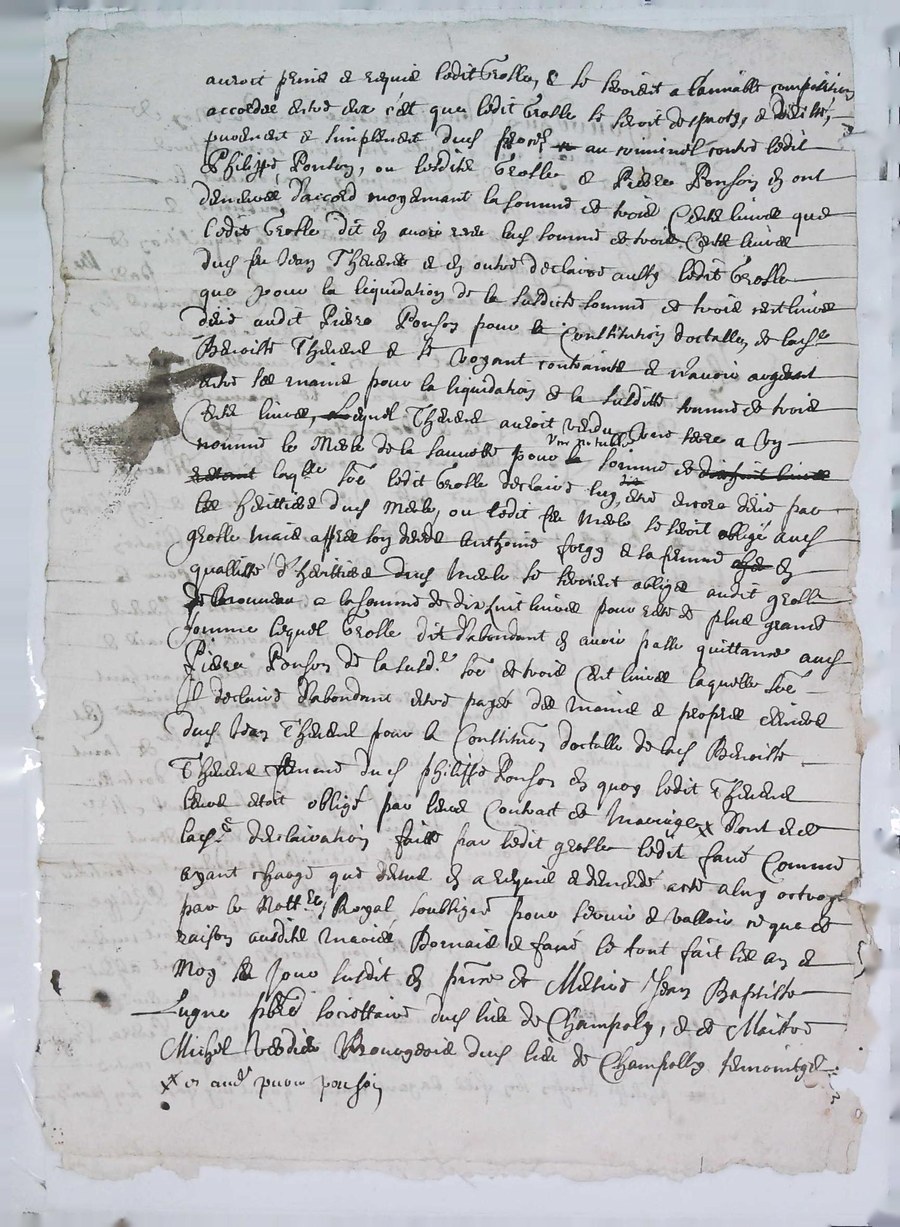 auroit prins et requis ledit Grolle, & se seroient a lamiable composition
accordes entre eux c'est que ledit Grolle se seroit desparty, et desisté,
purement et simplement dud procés au criminel contre ledit
Philippe Ponson, ou lesdits Grolle et Pierre Ponson en ont
demeuré d'accord moyenant la somme de trois Cents livres que
ledit Grolle dit en avoir receu lad somme de trois Cents livres
dud fu Jean Therene et en outre declaire aussy ledit Grolle
que pour la liquidation de la susdicte somme de trois cent livres
deue audit Pierre Ponson pour la Constitution doctalle, de lad
Benoiste Therene et se voyant contrainte et n'avoir argent
entre ses mains pour la liquidation de la susditte somme de trois
Cents livres, Lequel Therene auroit vendu une terre a un
nommé le Merle de la Sauvette pour la somme de dixhuit livres
laqlle soe ledit Grolle declaire luy estre encore deue par
les heritiers dud Merle, ou ledit fu Merle se seroit obligé aud
Grolle mais apres son deces Anthoine forgy et sa femme en
quallitté d'heritiers dud Merle se seroient obliges audit grolle
a la somme de dix huit livres pour reste de plus grande
somme lequel Grolle dit d'abondant en avoir passe quittance aud
Pierre Ponson de la susd.e soe de trois Cent livres laquelle soe
Il declaire d'abondant estre payés des mains et propres deniers
dud Jean Therene pour la Constitution doctalle de lad Benoiste
Therene femme dud philippe Ponson en quoy ledit Therene
leurs etoit obligé par leurs Contract de Mariage x Dont de
lad.e declairation faitte par ledit grolle ledit farié Comme
ayant chargé que dessus en a requis et demendé acte a luy octroyé
par le Nott.re Royal soubsigné pour servir et valloir ce que de
raison ausdits mariés Bernard et farié le tout fait les an et
Moy le Jour susdit en prnce de Messire Jean Baptiste
Lugne pbre societtaire dud lieu de Champoly, et de Maittre
Michel Verdier Bourgeois dud lieu de Champolly temointz
x et aud pierre ponson